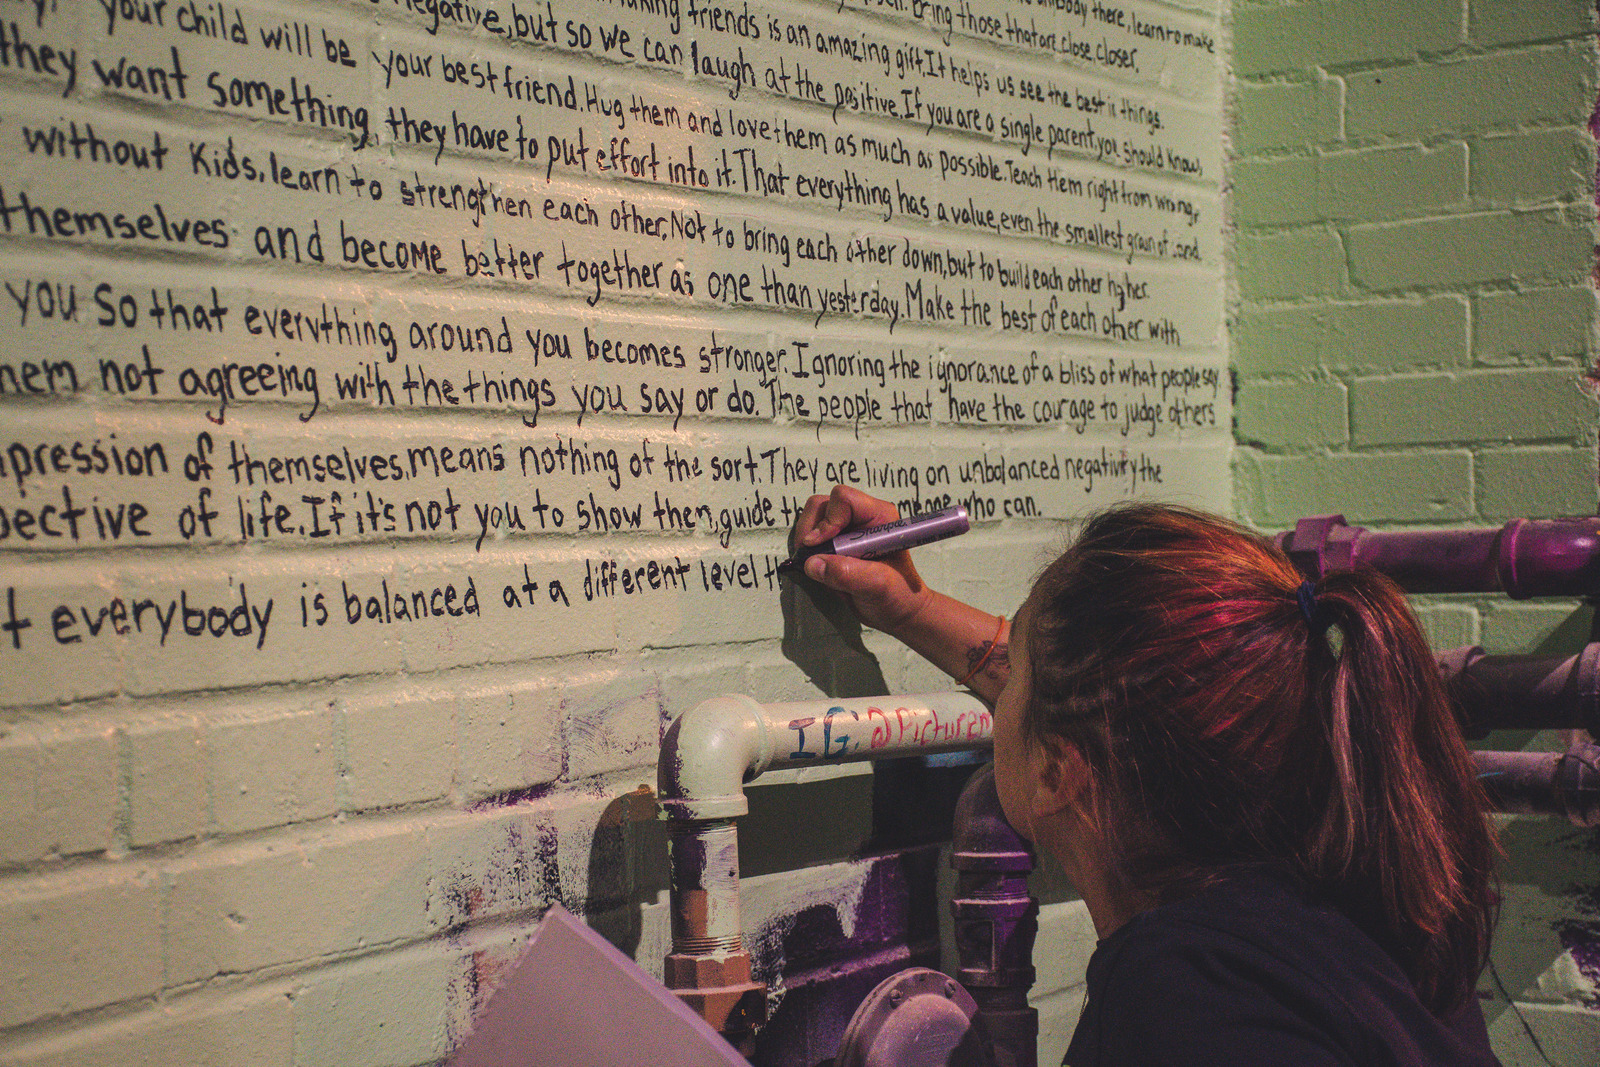 there, learn to make
friends is an amazing gift. It helps us see the best in things.
Bring those that are close, closer.
negative, but so we can laugh at the positive. If you are a single parent, you should know,
your child will be your best friend. Hug them and love them as much as possible. Teach them right from wrong,
they want something, they have to put effort into it. That everything has a value, even the smallest grain of sand.
without Kids, learn to strengthen each other. Not to bring each other down, but to build each other higher.
themselves and become better together as one than yesterday. Make the best of each other with
you so that everything around you becomes stronger. Ignoring the ignorance of a bliss of what people say
not agreeing with the things you say or do. The people that have the courage to judge others
pression of themselves, means nothing of the sort. They are living on unbalanced negativity the
pective of life. If it's not you to show them, guide who can.
everybody is balanced at a different level
Sharpie
IG: @Picturem